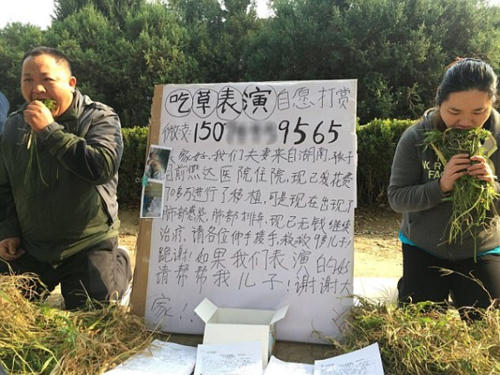 吃草表演 自愿打赏
微信 150 9565
大家好,我们夫妻来自湖南,孩子
目前燕达医院住院,现已花费
70多万进行了移植,可是现在出现了
肺部感染,肺部排异,现已无钱继续
治疗,请各位伸手援手,救救9岁儿子!
跪谢!如果我们表演的好
请帮帮我儿子!谢谢大
家!!